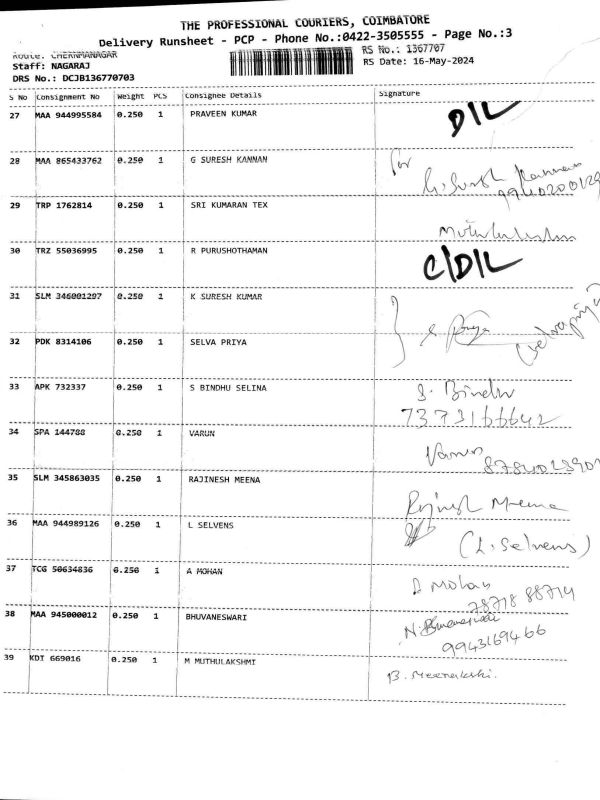 THE PROFESSIONAL COURIERS, COIMBATORE
Delivery Runsheet - PCP - Phone No.:0422-3505555 - Page No.:3
Route: CHERANMANAGAR
RS No.: 1367707
Staff: NAGARAJ
RS Date: 16-May-2024
DRS No.: DCJB136770703
S No Consignment No Weight PCS Consignee Details Signature
27 MAA 944995584 0.250 1 PRAVEEN KUMAR D/L
28 MAA 865433762 0.250 1 G SURESH KANNAN for
G. Suresh Kannan
29 TRP 1762814 0.250 1 SRI KUMARAN TEX
30 TRZ 55036995 0.250 1 R PURUSHOTHAMAN C/D/L
31 SLM 346001297 0.250 1 K SURESH KUMAR
32 PDK 8314106 0.250 1 SELVA PRIYA (Selvapriya)
33 APK 732337 0.250 1 S BINDHU SELINA S. Bindhu
7373166642
34 SPA 144788 0.250 1 VARUN Varun
35 SLM 345863035 0.250 1 RAJINESH MEENA Rajinesh Meena
36 MAA 944989126 0.250 1 L SELVENS (L. Selvens)
37 TCG 50634836 0.250 1 A MOHAN A Mohan
78718 88714
38 MAA 945000012 0.250 1 BHUVANESWARI N. Bhuvaneswari
9943169466
39 KDI 669016 0.250 1 M MUTHULAKSHMI B. Meenakshi.